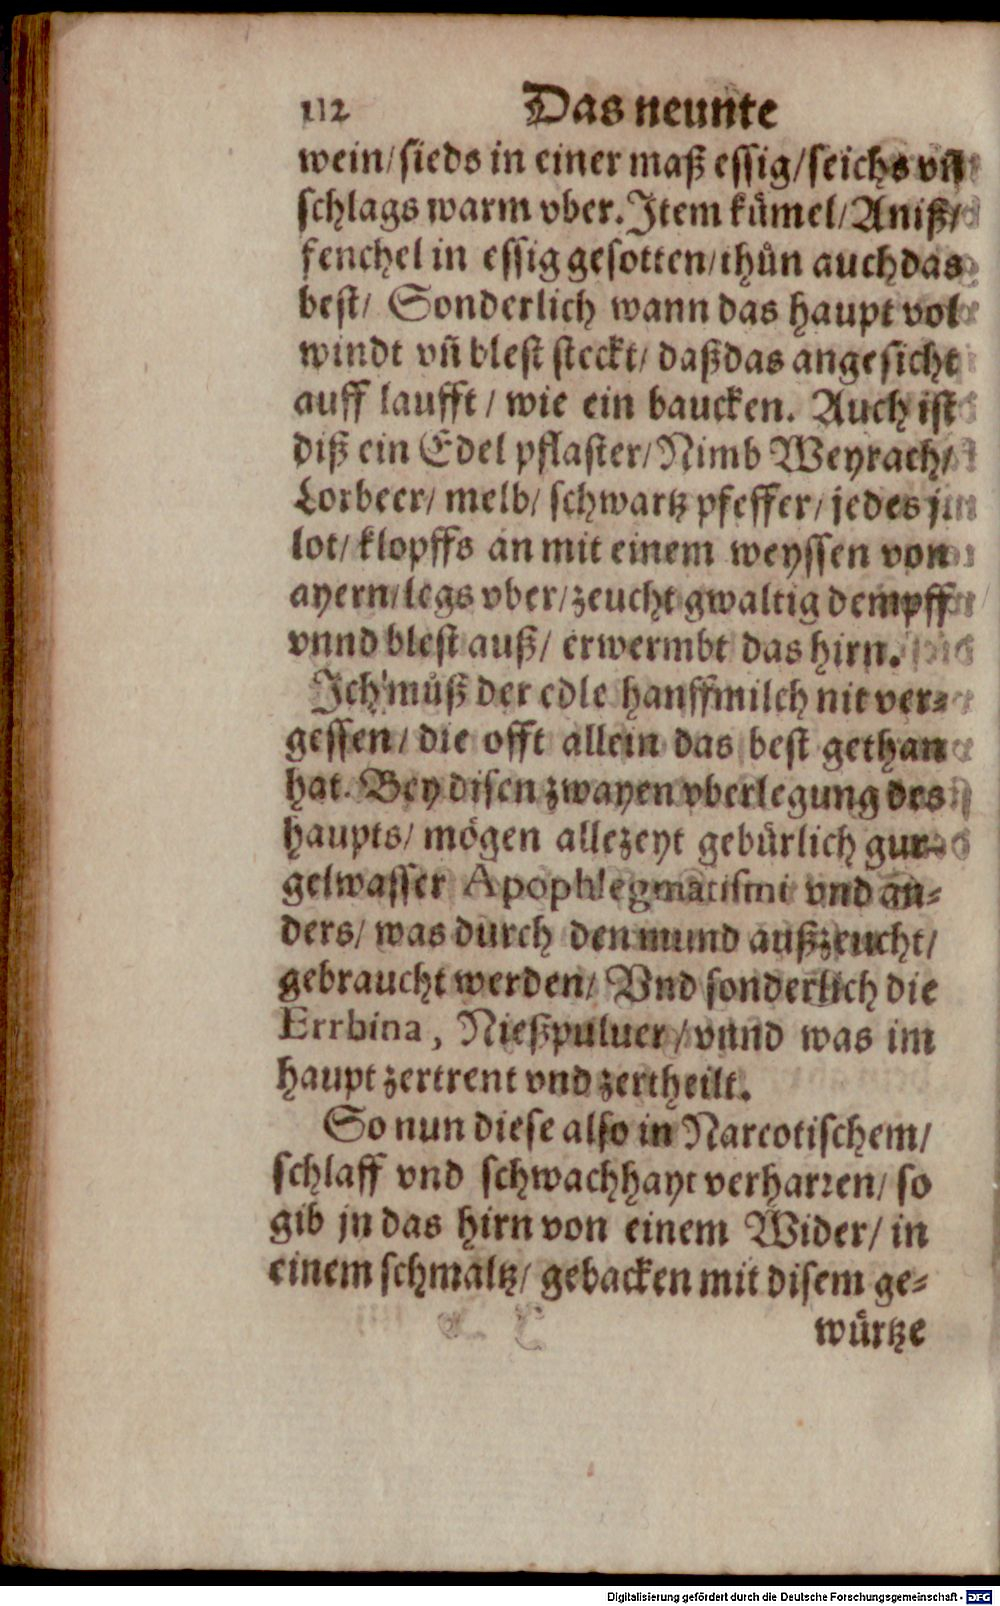 112 Das neunte
wein/ sieds in einer maß essig/ seichs vñ
schlags warm vber. Item kümel/ Aniß/
fenchel in essig gesotten/ thůn auch das
best/ Sonderlich wann das haupt vol
windt vñ blest steckt/ daß das angesicht
auff laufft/ wie ein baucken. Auch ist
diß ein Edel pflaster/ Nimb Weyrach/
Lorbeer/ melb/ schwartz pfeffer/ jedes
lot/ klopffs an mit einem weyssen von
ayern/ legs vber/ zeucht gwaltig dempff
vnnd blest auß/ erwermbt das hirn.
Ich můß der edle hanffmilch nit ver-
gessen/ die offt allein das best gethan
hat. Bey disen zwayen vberlegung des
haupts/ mögen allezeyt gebürlich gur-
gelwasser Apophlegmatismi vnd an-
ders/ was durch den mund außzeucht/
gebraucht werden/ Vnd sonderlich die
Errhina, Nießpuluer/ vnnd was im
haupt zertrent vnd zertheilt.
So nun diese also in Narcotischem/
schlaff vnd schwachhayt verharren/ so
gib jn das hirn von einem Wider/ in
einem schmaltz/ gebacken mit disem ge-
würtze
Digitalisierung gefördert durch die Deutsche Forschungsgemeinschaft - DFG